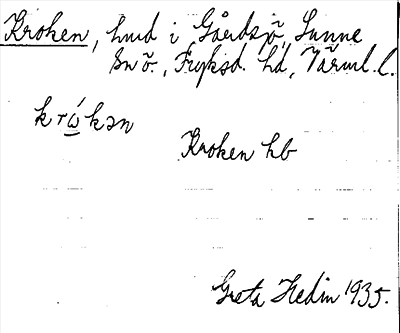 Kroken, hmd i Gårdsjö, Sunne
sn ö., Fryksd. hd, Värml. l.
krώ̲kən
Kroken hb
Greta Hedin 1935.